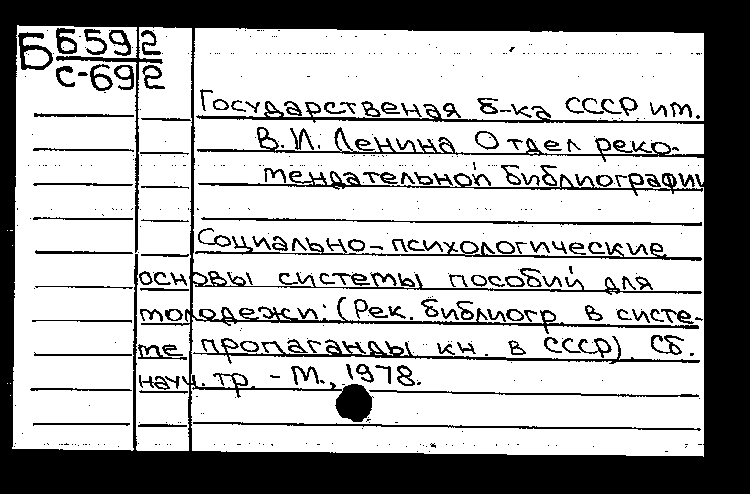 Б 6592
с-692
Государственая б-ка СССР им.
В. И. Ленина Отдел реко-
мендательной библиографии
Социально-психологические
основы системы пособий для
молодежи: (Рек. библиогр. в систе-
ме пропаганды кн. в СССР). Сб.
науч. тр. - М., 1978.